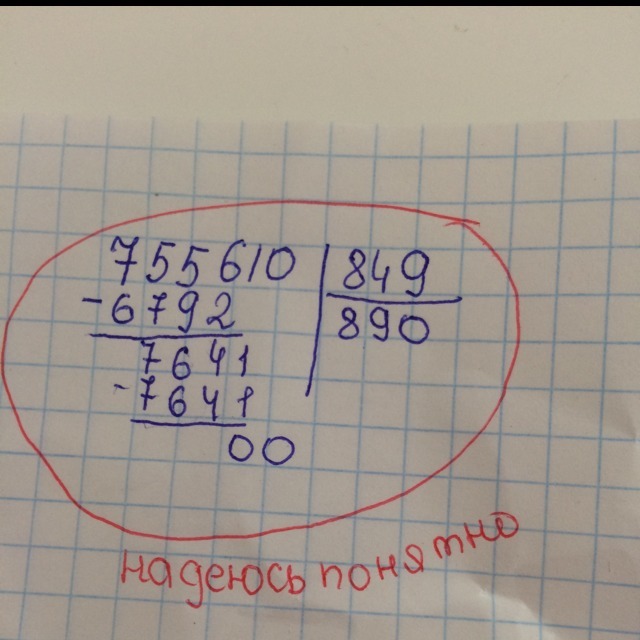 755610 849
-6792 890
7641
-7641
00
надеюсь понятно